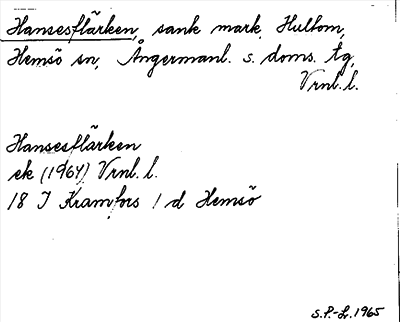 Hansesflärken, sank mark, Hultom,
Hemsö sn, Ångermanl. s. doms. tg,
Vrnl. l.
Hansesflärken
ek (1964) Vrnl. l.
18 I Kramfors 1 d Hemsö
S.P.-L. 1965